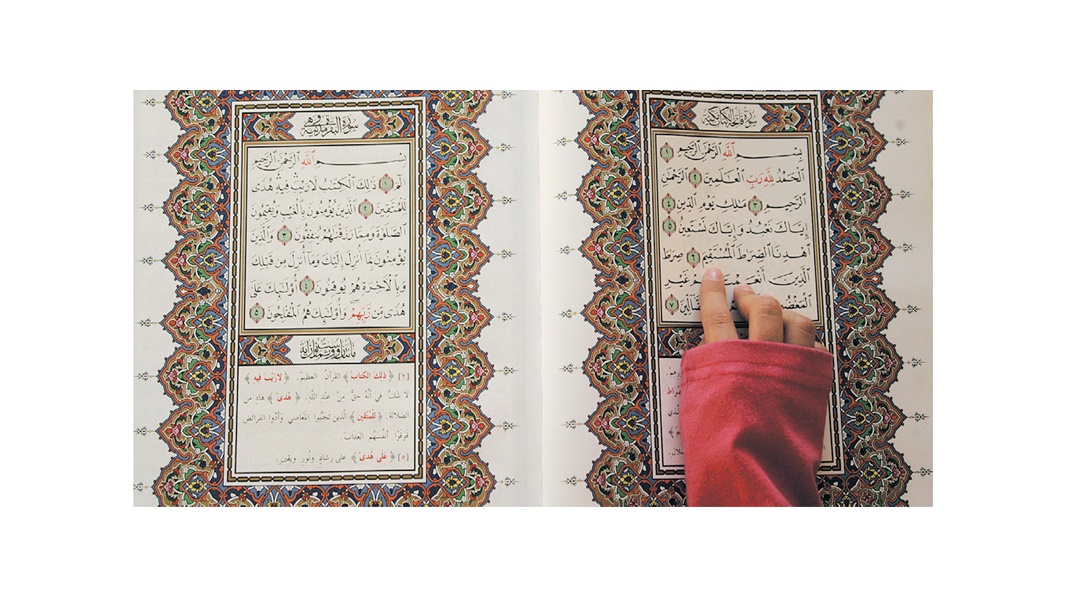 سورة فاتحة الكتاب مكية
بِسْمِ ٱللَّهِ ٱلرَّحْمَٰنِ ٱلرَّحِيمِ ١
ٱلْحَمْدُ لِلَّهِ رَبِّ ٱلْعَٰلَمِينَ ٢ ٱلرَّحْمَٰنِ
ٱلرَّحِيمِ ٣ مَٰلِكِ يَوْمِ ٱلدِّينِ ٤
إِيَّاكَ نَعْبُدُ وَإِيَّاكَ نَسْتَعِينُ ٥
ٱهْدِنَا ٱلصِّرَٰطَ ٱلْمُسْتَقِيمَ ٦ صِرَٰطَ
ٱلَّذِينَ غَيْرِ
٧
سورة البقرة مدنية وهي
بِسْمِ ٱللَّهِ ٱلرَّحْمَٰنِ ٱلرَّحِيمِ
الٓمٓ ١ ذَٰلِكَ ٱلْكِتَٰبُ لَا رَيْبَ فِيهِ هُدًى
لِّلْمُتَّقِينَ ٢ ٱلَّذِينَ يُؤْمِنُونَ بِٱلْغَيْبِ وَيُقِيمُونَ
ٱلصَّلَوٰةَ وَمِمَّا رَزَقْنَٰهُمْ يُنفِقُونَ ٣ وَٱلَّذِينَ
يُؤْمِنُونَ بِمَآ أُنزِلَ إِلَيْكَ وَمَآ أُنزِلَ مِن قَبْلِكَ
وَبِٱلْءَاخِرَةِ هُمْ يُوقِنُونَ ٤ أُو۟لَٰٓئِكَ عَلَىٰ
هُدًى مِّن رَّبِّهِمْ وَأُو۟لَٰٓئِكَ هُمُ ٱلْمُفْلِحُونَ ٥
مائتان وست وثمانون آية
[٢] ﴿ذلك الكتاب﴾ القرآن العظيم. ﴿لا ريب فيه﴾
لا شك في أنه حق من عند الله. ﴿هدى﴾ هاد من
الضلالة. ﴿للمتقين﴾ الذين تجنبوا المعاصي وأدوا الفرائض
فوقوا أنفسهم العذاب.
[٥] ﴿على هدى﴾ على رشاد ونور ويقين.